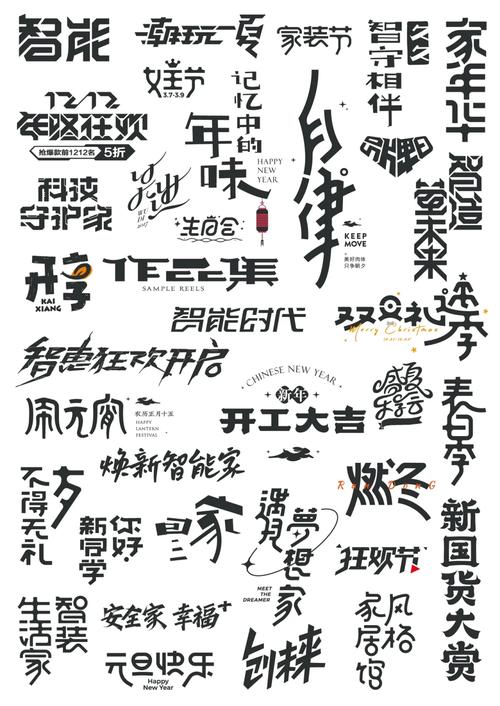 智能
潮玩一夏
家装节
智守相伴
家年华
女王节
3.7-3.9
记忆中的
年味
HAPPY
NEW
YEAR
12/12
年终狂欢
抢爆款前1212名
5折
科技
守护家
生态会
KEEP
MOVE
美好肉体
只争朝夕
开享
KAI
XIANG
作品集
SAMPLE REELS
智能时代
双旦礼
Merry Christmas
智惠狂欢开启
闹元宵
农历正月十五
HAPPY
LANTERN
FESTIVAL
CHINESE NEW YEAR
新年
开工大吉
表白季
焕新智能家
不得无礼
新同学
你好
燃冬
RAN DONG
遇见
梦想
家
MEET
THE
DREAMER
狂欢节
新国货大赏
生活家
智装
安全家 幸福+
元旦快乐
Happy
New Year
创未来
家居馆
风格